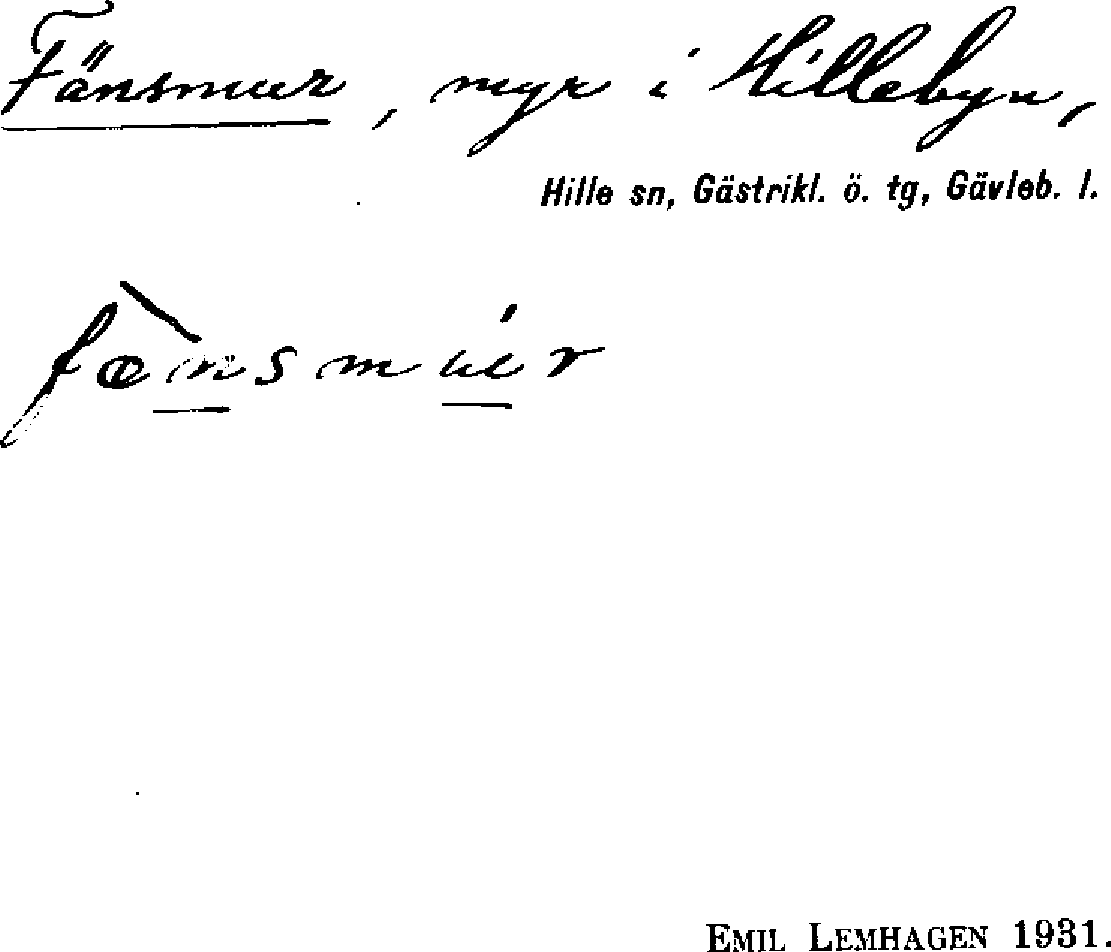 Fänsmur, myr i Hillebyn,
Hille sn, Gästrikl. ö. tg, Gävleb. l.
fæ̀nsmúr
EMIL LEMHAGEN 1931.